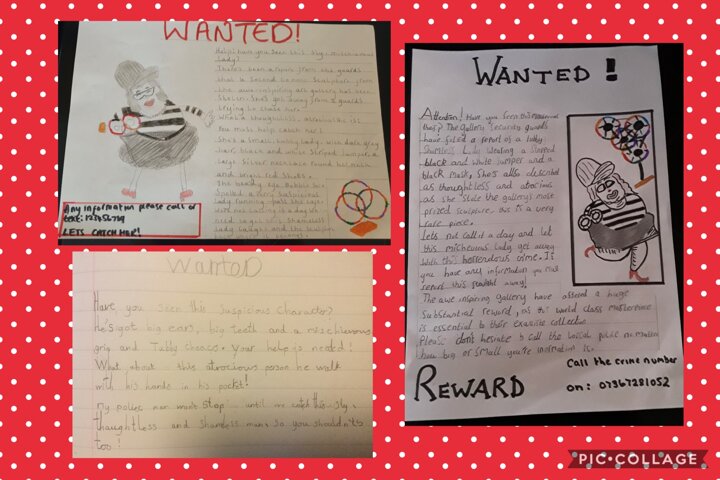 WANTED!
Help! have you seen this sly, mischievous
lady?
There's been a report from the guards
that a second bronze sculpture from
the awe-inspiring art gallery has been
Stolen. She's got away from 2 guards
trying to chase her.
What a thoughtless, atrocious
You must help catch her!
She's a small, tubby lady, with dark grey
hair black and white Striped Jumper, a
large Silver necklace round her neck
and bright red shoes.
a very Suspicious
lady running past the
not calling it a day
Shameless
lady
Any information please call or
LETS CATCH HER!
Wanted
Have you seen this suspicious character?
He's got big ears, big teeth and a mischievous
grin and Tubby cheacs. Your help is needed!
What about this atrocious person he walk
with his hands in his pocket!
my police man won't stop until we catch this sly,
thoughtless and shameless man, so you shouldn't
too!
WANTED!
Attention! Have you seen this
thief? The gallery security guards
have filed a report of a tubby
Shameless Lady wearing a striped
black and white jumper and a
black mask. She's also described
as thoughtless and atrocious
as she stole the gallery's most
prized sculpture, this is a very
rare piece.
Lets not call it a day and let
this michevous lady get away
with this horrendous crime. If
you have any information you must
report this straight away!
The awe inspiring gallery have offered a huge
Substantial reward, as this world class masterpiece
is essential to their exquisite collection.
Please don't hesitate to call the police no matter
how big or small you're information is.
REWARD
Call the crime number
on: 07367281052
PIC•COLLAGE